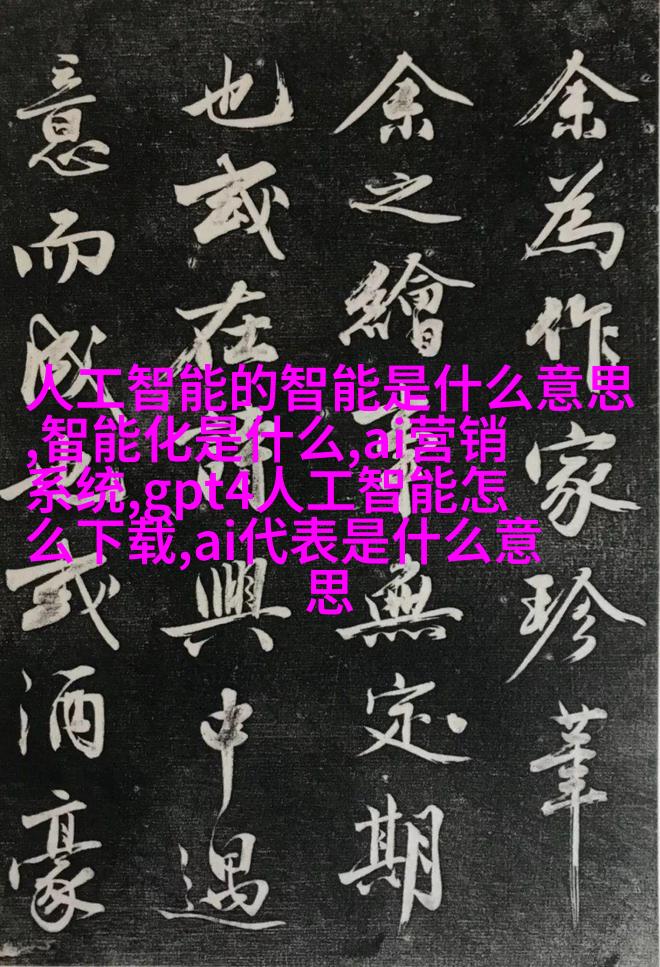 余為作家珍筆
余之繪事無定期
也或在詩興中遇
意而成或酒豪
人工智能的智能是什么意思
,智能化是什么,ai营销
系统,gpt4人工智能怎
么下载,ai代表是什么意
思